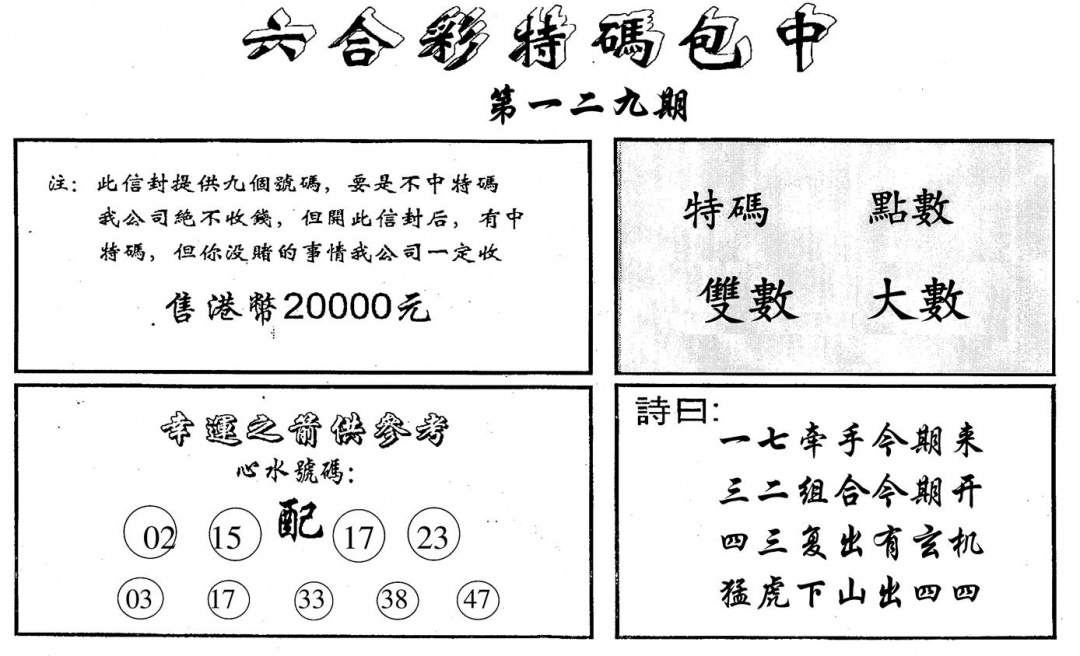 六合彩特碼包中
第一二九期
注：此信封提供九個號碼，要是不中特碼
我公司絕不收錢，但開此信封后，有中
特碼，但你没賭的事情我公司一定收
售港幣20000元
特碼 點數
雙數 大數
幸運之箭供參考
心水號碼：
配
02 15 17 23
03 17 33 38 47
詩曰：
一七牵手今期来
三二组合今期开
四三复出有玄机
猛虎下山出四四